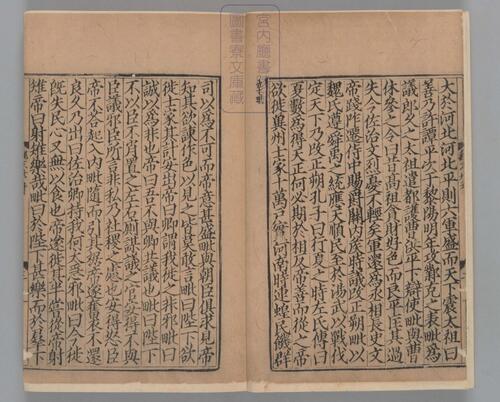 宮内廳書
圖書寮文庫藏
大於河北河北平則六軍盛而天下震太祖曰
善乃許譚平次于黎陽明年攻鄴克之表毗為
議郎久之太祖遣都護曹洪平下辯使毗與曹
休參之令曰昔高祖貪財好色而良平匡其過
失今佐治文烈憂不輕矣軍還為丞相長史文
帝踐阼遷侍中賜爵關內侯時議改正朔毗以
魏氏遵舜禹之統應天順民至於湯武以戰伐
定天下乃改正朔孔子曰行夏之時左氏傳曰
夏數為得天正何必期於相反帝善而從之帝
欲徙冀州士家十萬戶實河南時連蝗民饑群
司以為不可而帝意甚盛毗與朝臣俱求見帝
知其欲諫作色以見之皆莫敢言毗曰陛下欲
徙士家其計安出帝曰卿謂我徙之非邪毗曰
誠以為非也帝曰吾不與卿共議也毗曰陛下
不以臣不肖置之左右厠議之官安得不與
臣議邪臣所言非私乃社稷之慮也安得怒臣
帝不荅起入內毗隨而引其裾帝遂奮衣不還
良久乃出曰佐治卿持我何太急邪毗曰今徙
既失民心又無以食也帝遂徙其半嘗從帝射
雉帝曰射雉樂哉毗曰於陛下甚樂而於羣下